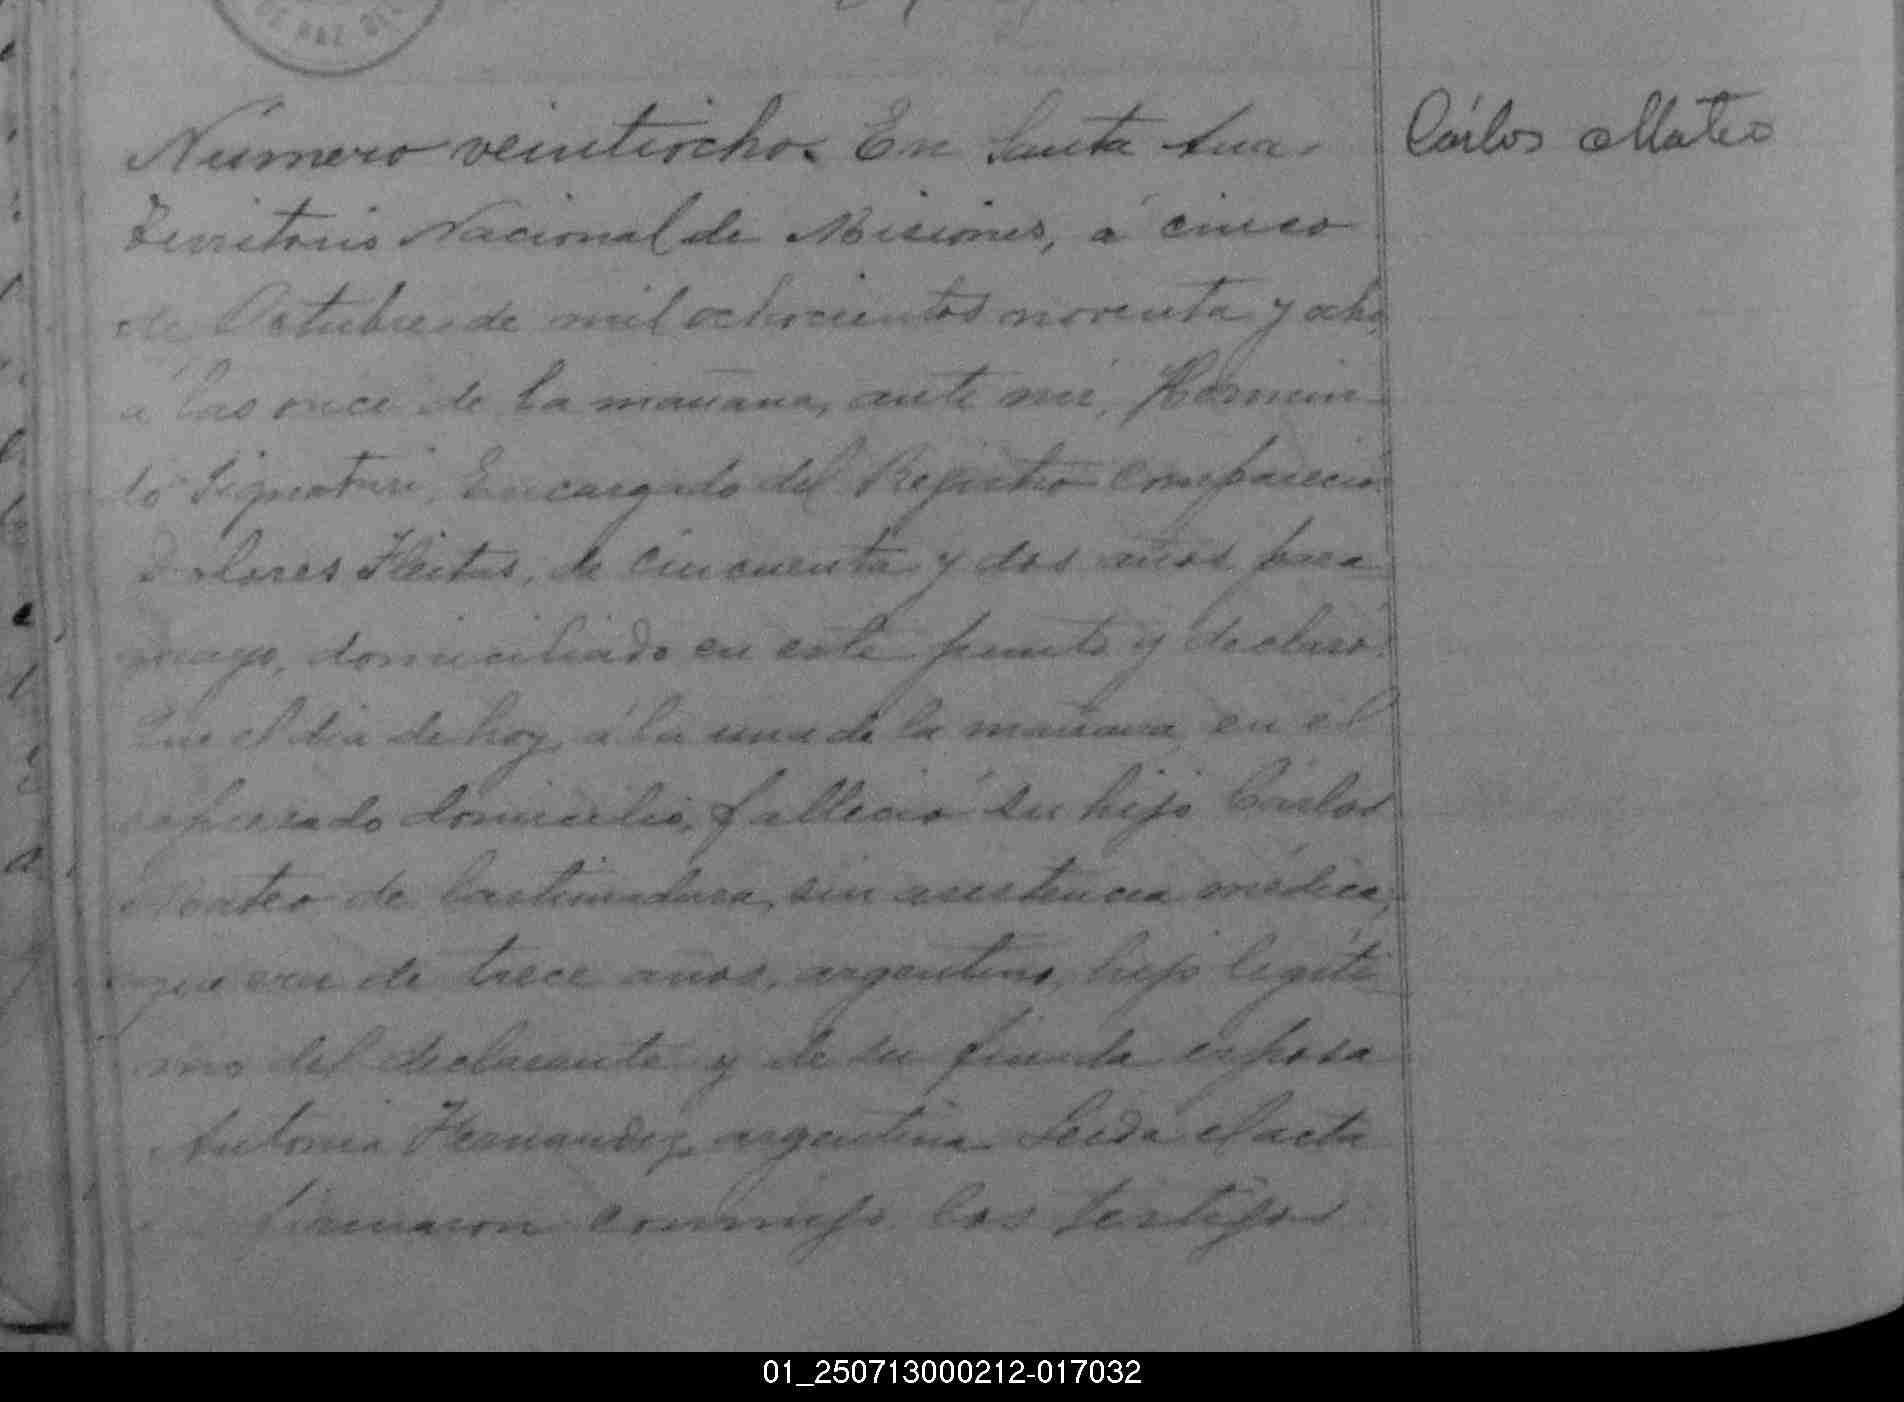 DE PAZ DEL
Número veintiocho. En Santa Ana
Cárlos Mateo
Territorio Nacional de Misiones, á cinco
de Octubre de mil ochocientos noventa y ocho,
á las once de la mañana, ante mí, Hermin-
do Encargado del Registro compareció
Dolores Fleitas, de cincuenta y dos años, para-
guayo, domiciliado en este punto y declaró:
Que el dia de hoy, á la una de la mañana, en el
espresado domicilio, falleció su hijo Cárlos
Mateo de lastimadura, sin asistencia médica,
que era de trece años, argentino, hijo legíti-
mo del declarante y de su finada esposa
Antonia Hernandez, argentina. Leida el acta
firmaron conmigo los testigos
01_250713000212-017032